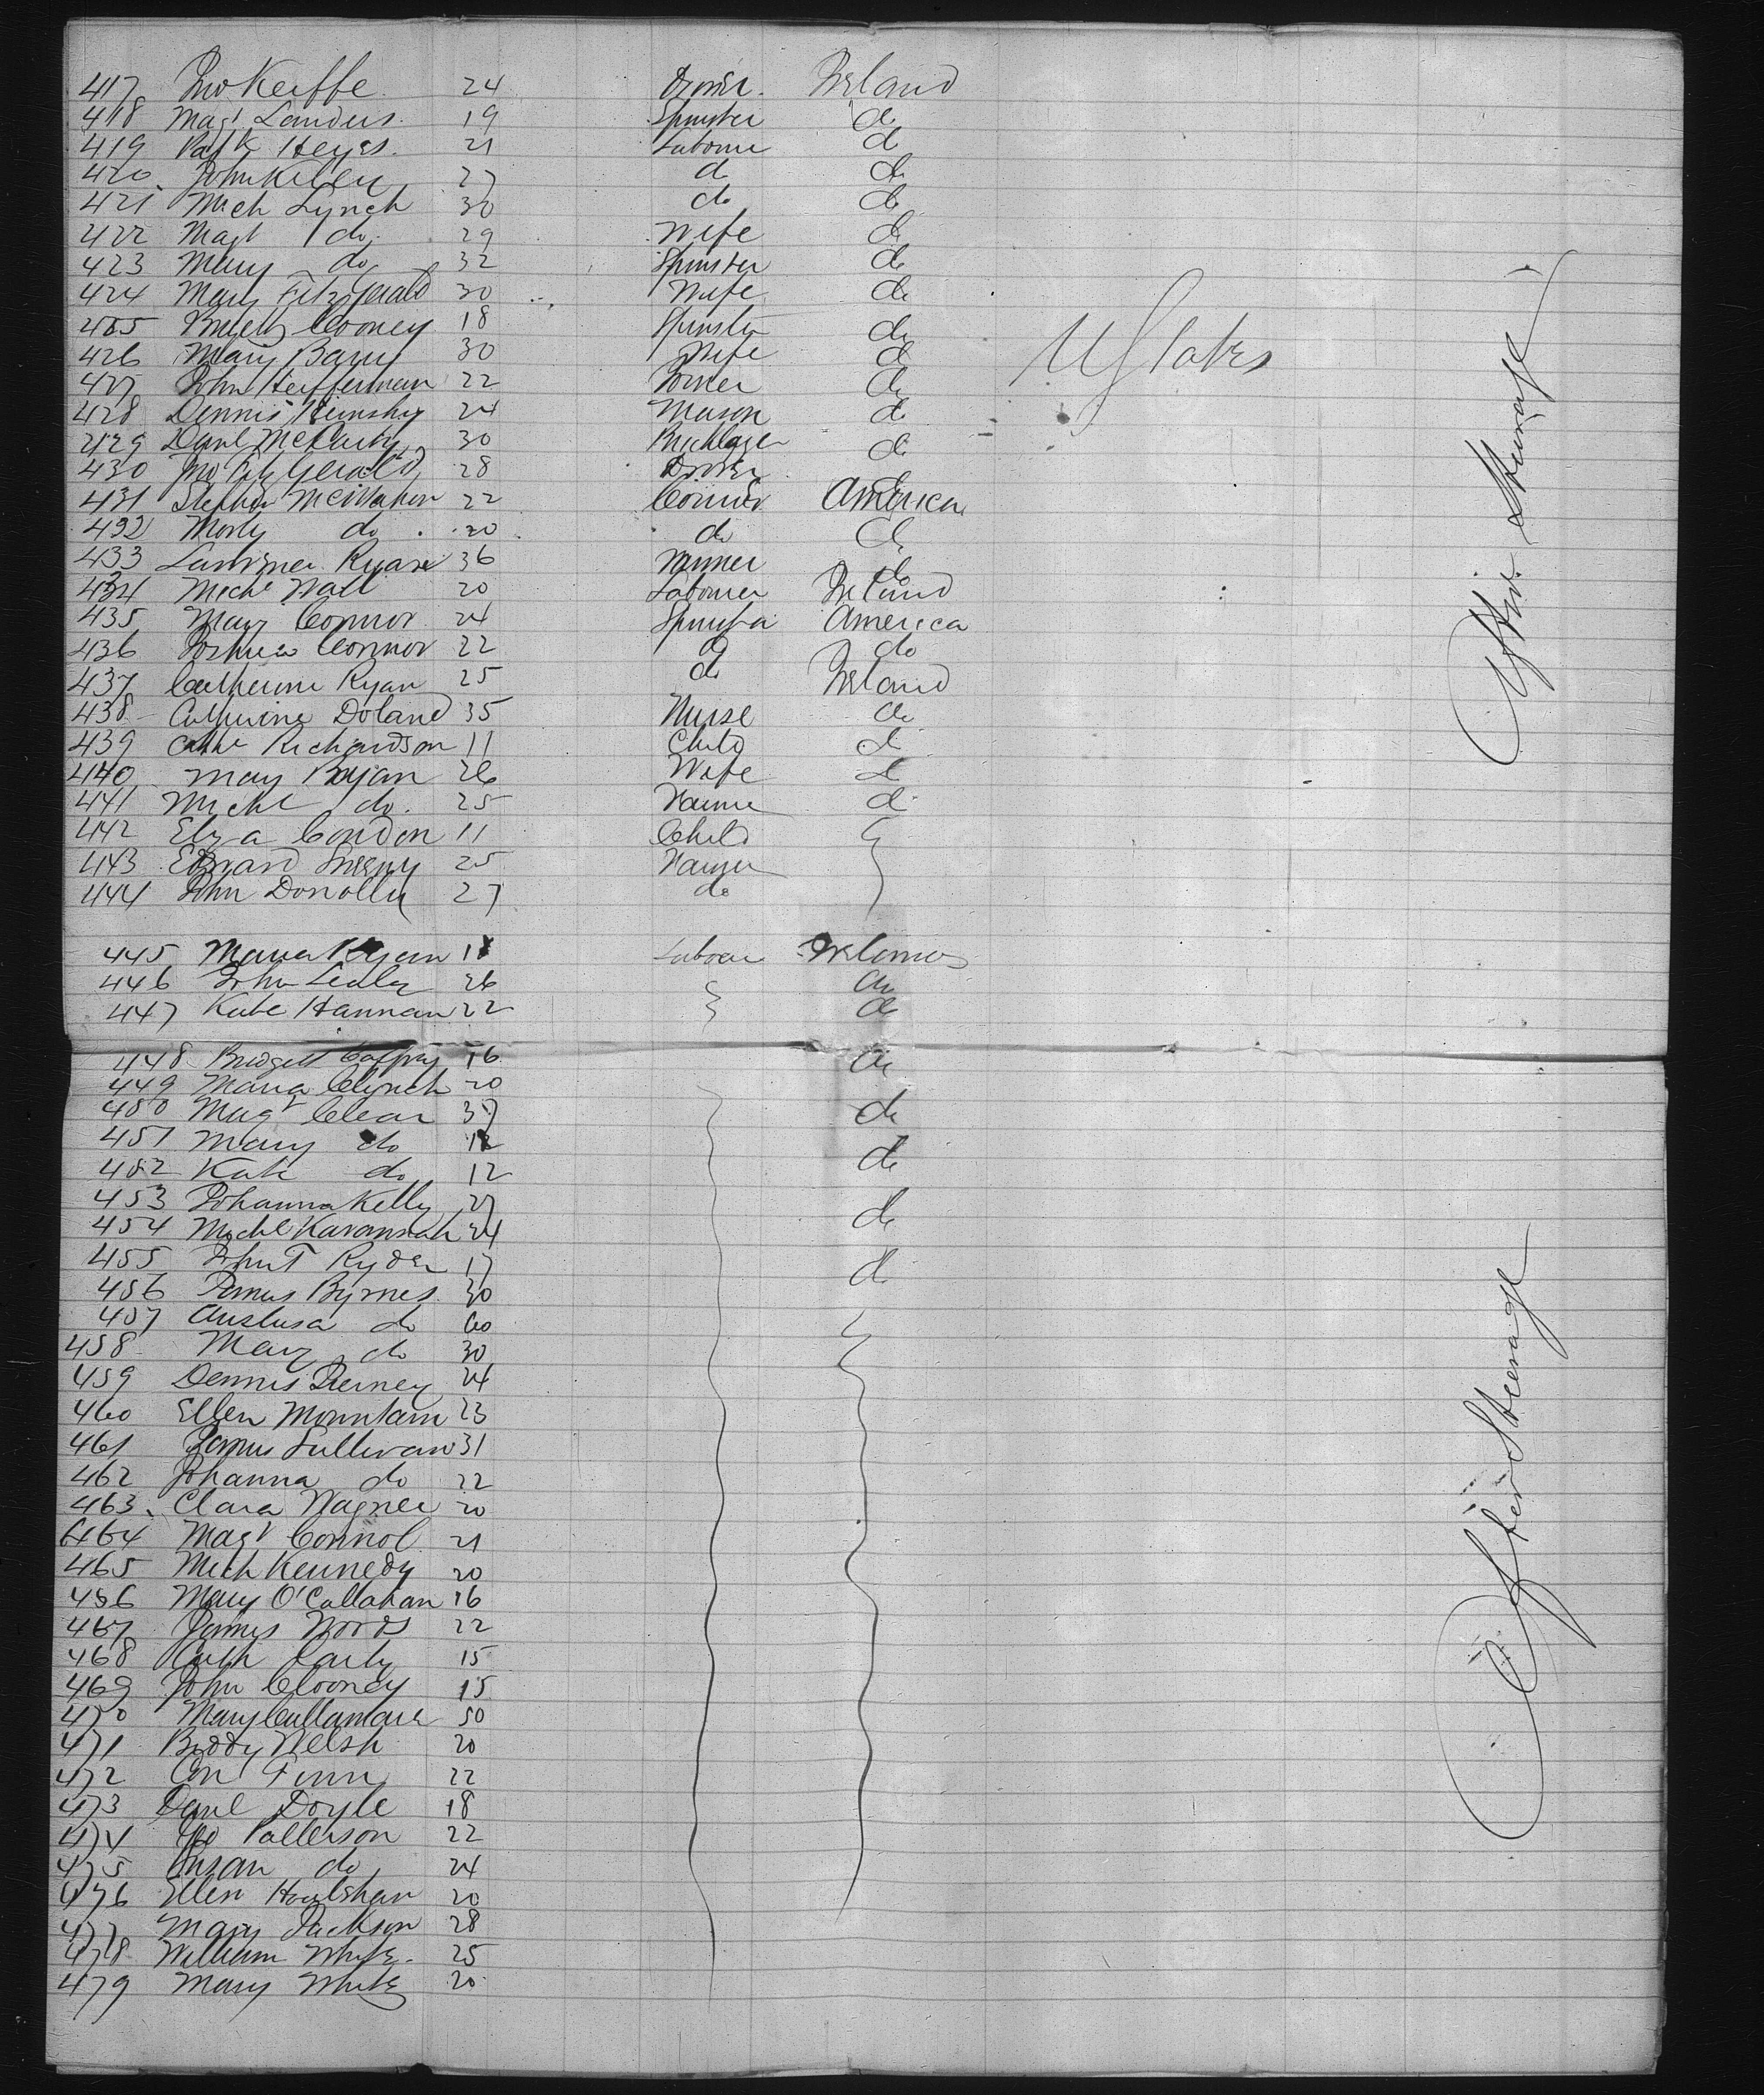 417 Jno Keiffe 24 Drover. Ireland
418 Magt Landers 19 Spinster do
419 Patk Heyes 21 Laborer do
420 John Kiley 27 do do
421 Mich Lynch 30 do do
422 Magt do 29 Wife do
423 Mary do 32 Spinster do
424 Mary Fitzgerald 30 Wife do
425 Cooney 18 Spinster do
426 Mary Barry 30 Wife do
427 John Heffernan 22 do
428 Dennis 24 Mason do
429 Danl McCarty 30 Bricklayer do
430 Jno Fitz Gerald 28 Drover
431 Stephen McMahon 22 America
432 do 20 do do
433 Ryan 36 Farmer do
434 Michl Wall 20 Laborer Ireland
435 Mary Connor 24 Spinster America
436 Connor 22 do do
437 Catherine Ryan 25 do Ireland
438 Catherine Doland 35 Nurse do
439 Cathe Richardson 11 Child do
440 Mary Ryan 26 Wife do
441 Michl do. 25 Farmer do
442 Eliza Condon 11 Child
443 Edward 25 Farmer
444 John Donolly 27 do
445 Maria Ryan 18 Laborer Ireland
446 John 26 do
447 Kate Hannan 22 do
448 Bridget Caffrey 16 do
449 Maria Clynch 20
450 Magt Clear 37 do
451 Mary do
452 Kate do 12 do
453 Johanna Kelly 27 do
454 Michl Kavannah 24
455 John T Ryder 17 do
456 James Byrnes 30
457 do 60
458 Mary do 30
459 Dennis Tierney 24
460 Ellen Mountain 23
461 James Sullivan 31
462 Johanna do 22
463 Clara Wagner 20
464 Magt Connol 21
465 Mich Kennedy 20
466 Mary O'Callahan 16
467 James Woods 22
468 Early 15
469 John Clooney 15
470 Mary Cullamore 50
471 Biddy Welsh 20
472 Con Finn 22
473 Danl Doyle 18
474 Geo Patterson 22
475 Susan do 24
476 Ellen Houlehan 20
477 Mary Jackson 28
478 William White 25
479 Mary White 20
U States
After Steerage
After Steerage